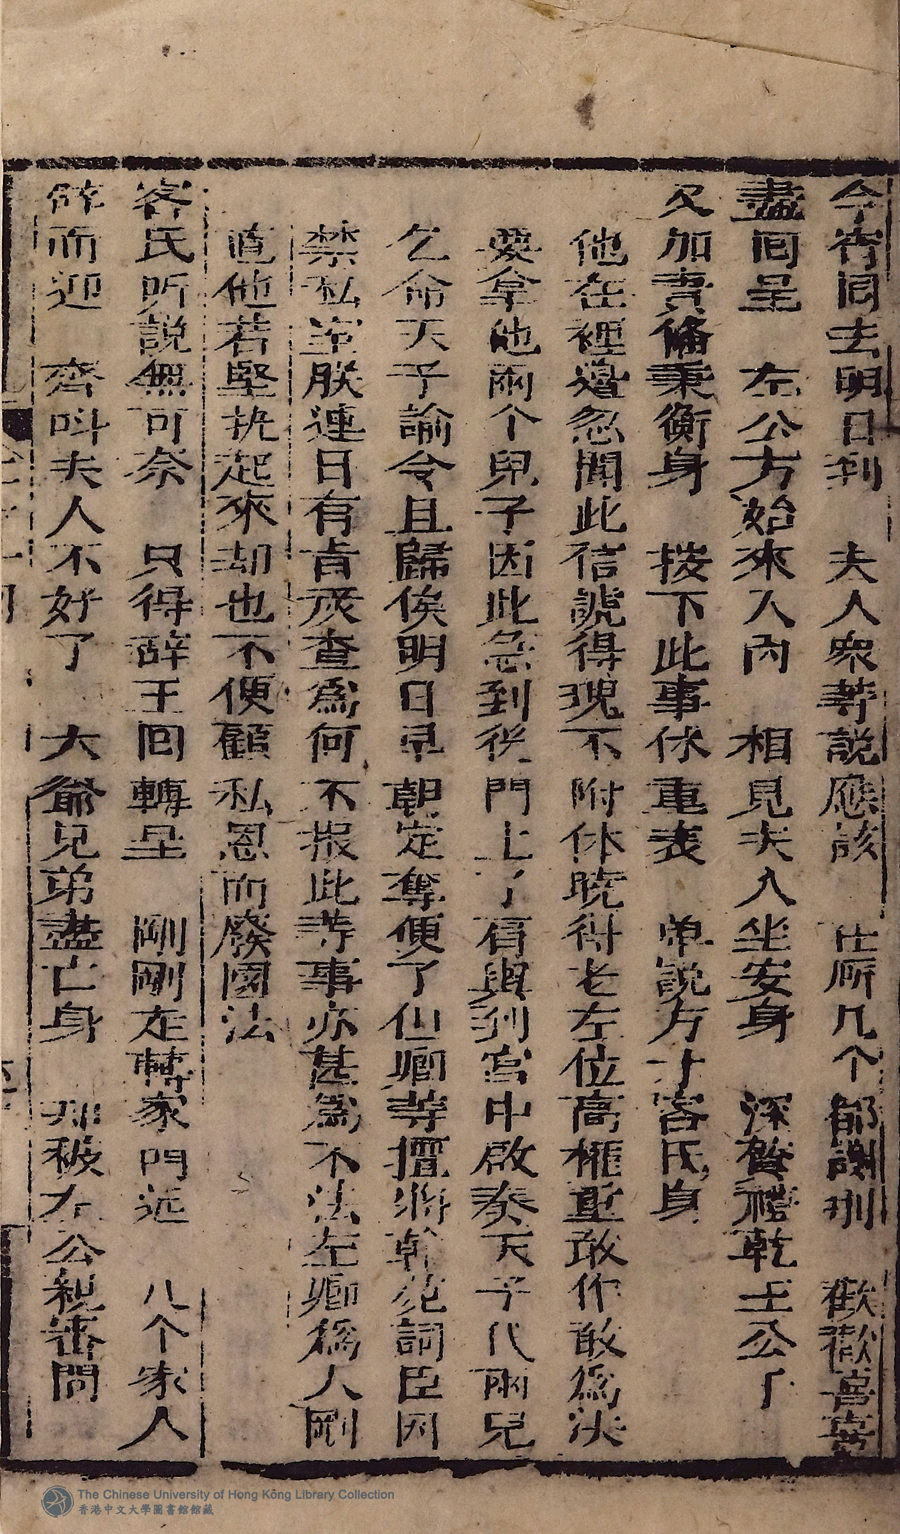 今宵囘去明日到　夫人衆等説應該　仕厮几个都謝聊　歡歡喜喜
盡囘呈　左公方始來入內　相見夫人坐安身　深贊禮乾王公子
又加責俻秉衡身　按下此事休重表　单説方才客氏身
他在裡邊忽聞此信諕得魂不附体暁得老左位高權重敢作敢爲决
要拿他兩个兒子因此急到後門上了肩輿到宮中啟奏天子代兩兒
乞命天子諭令且歸俟明日早朝定奪便了但卿等擅將翰苑詞臣囚
禁私室朕連日有肯疾查爲何不报此等事亦甚爲不法左卿爲人剛
直他若堅执起來却也不便顧私恩而廢國法
客氏听説無可奈　只得辞王囘轉呈　剛剛走轉家門近　八个家人
辞而迎　齊呌夫人不好了　大爺兄弟盡亡身　却被左公親審問
The Chinese University of Hong Kong Library Collection
香港中文大學圖書館館藏